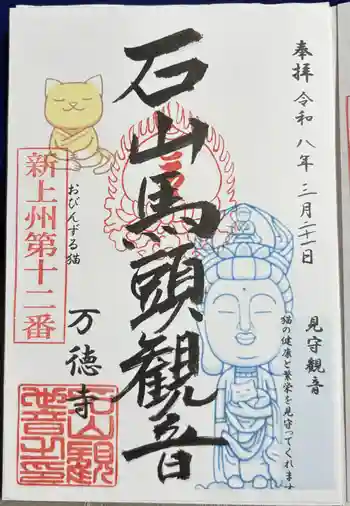 奉拝 令和八年三月二十一日
見守観音
猫の健康と繁栄を見守ってくれます
石山馬頭観音
おびんずる猫
万徳寺
新上州第十二番
石山観世音之印